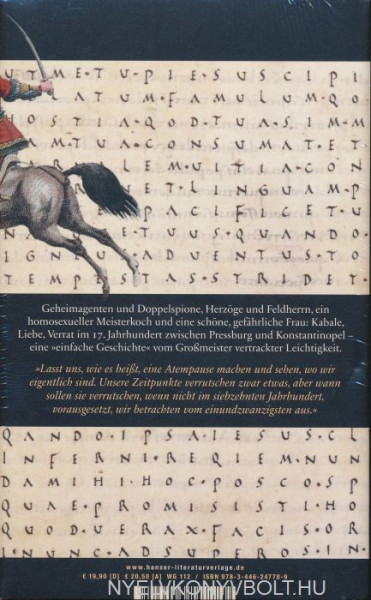 U T M E T U P I E S U S C I P I
L A T U M F A M U L U M Q O
O S T I A Q O D T U A S I M M
A M T U A C O N S U M A T E T
L E M U I T I A C O N
N E T L I N G U A M P
P A C I F I C E T U
N U A T U U S Q U A N D O
I G N E U A D U E N T U S T O
T E M P E S T A S S T R I D E T
Geheimagenten und Doppelspione, Herzöge und Feldherrn, ein
homosexueller Meisterkoch und eine schöne, gefährliche Frau: Kabale,
Liebe, Verrat im 17. Jahrhundert zwischen Pressburg und Konstantinopel –
eine »einfache Geschichte« vom Großmeister vertrackter Leichtigkeit.
»Lasst uns, wie es heißt, eine Atempause machen und sehen, wo wir
eigentlich sind. Unsere Zeitpunkte verrutschen zwar etwas, aber wann
sollen sie verrutschen, wenn nicht im siebzehnten Jahrhundert,
vorausgesetzt, wir betrachten vom einundzwanzigsten aus.«
Q A N D O I P S A I E S U S C L
I N F E R N I R E Q I E M N U N
D A M I H I H O C P O S C O S P
Q U A E P R O M I S I S T I H O
Q U O D U E R A X F A C I S O R
www.hanser-literaturverlage.de
€ 19,90 [D] € 20,50 [A] WG 112 / ISBN 978-3-446-24778-9
NYELVKONYVBOLT.HU